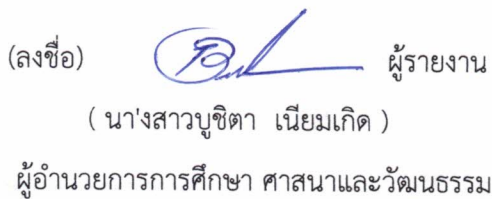 (ลงชื่อ) ผู้รายงาน
( นา'งสาวบูชิตา เนียมเกิด )
ผู้อำนวยการการศึกษา ศาสนาและวัฒนธรรม